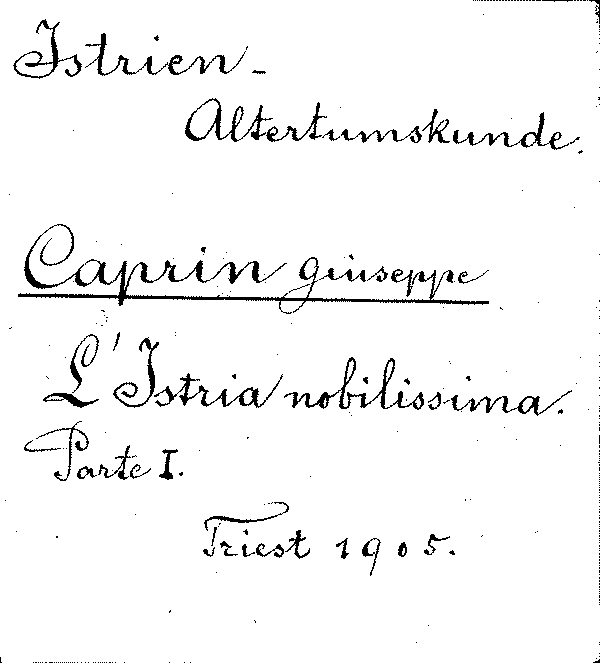 Istrien-
Altertumskunde.
Caprin Giuseppe
L'Istria nobilissima.
Parte I.
Triest 1905.